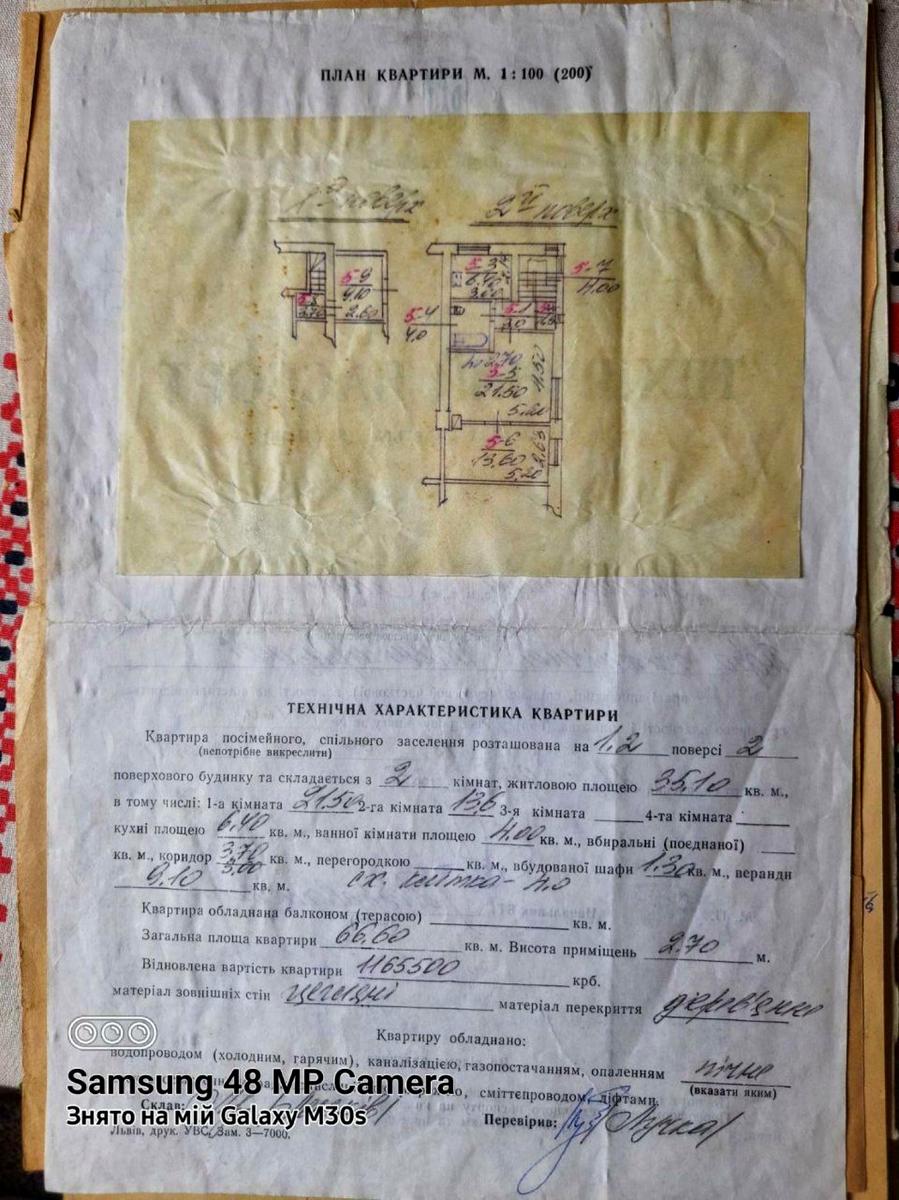 ПЛАН КВАРТИРИ М. 1 : 100 (200)
1й поверх
2й поверх
5-9
9,10
2.60
3,70
5-3
6,40
3.00
5-7
4.00
5-4
4,0
5-1
3,0
h=2,70
5-5
21.50
4,50
5,20
5-6
13,60
2,63
5,20
ТЕХНІЧНА ХАРАКТЕРИСТИКА КВАРТИРИ
Квартира посімейного, спільного заселення розташована на 1,2 поверсі 2
(непотрібне викреслити)
поверхового будинку та складається з 2 кімнат, житловою площею 35,10 кв. м.,
в тому числі: 1-а кімната 21.50 2-га кімната 13,6 3-я кімната 4-та кімната
кухні площею 6,40 кв. м., ванної кімнати площею 4.00 кв. м., вбиральні (поєднаної)
кв. м., коридор 3,70 3,00 кв. м., перегородкою кв. м., вбудованої шафи 1.30 кв. м., веранди
9.10 кв. м. сх. клітка - 4.0
Квартира обладнана балконом (терасою) кв. м.
Загальна площа квартири 66,60 кв. м. Висота приміщень 2,70 м.
Відновлена вартість квартири 1165500 крб.
матеріал зовнішніх стін цегляні матеріал перекриття дерев'яне
Квартиру обладнано:
водопроводом (холодним, гарячим), каналізацією, газопостачанням, опаленням пічне
(вказати яким)
сміттєпроводом, ліфтами.
Samsung 48 MP Camera
Знято на мій Galaxy M30s
Склав:
Перевірив:
Львів, друк. УВС, Зам. 3—7000.